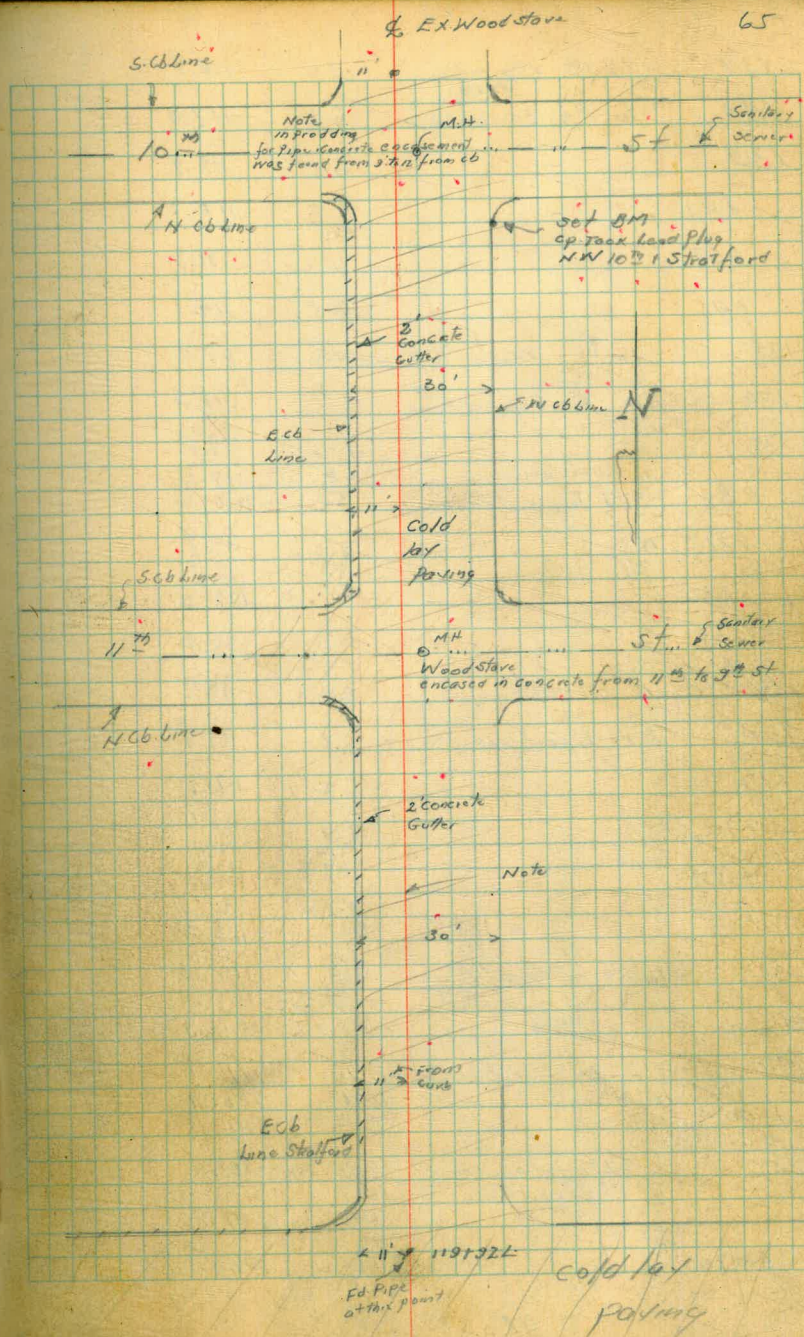 65
℄ EX. Wood stave
S. Cb Line
11'
Note
in Prodding
for Pipe Concrete encasement
was found from 9' to 12' from cb
M.H.
Sanitary
Sewer
10 th St
N Cb Line
Set BM
Lead Plug
NW 10th & Stratford
2'
Concrete
Gutter
30'
W Cb Line
N
E Cb
Line
11'
Cold
lay
Paving
S. Cb Line
11 th St.
M.H.
Sanitary
Sewer
Wood stave
encased in concrete from 11th to 9th St.
N Cb Line
2' Concrete
Gutter
Note
30'
11' From
Curb
E Cb
Line Stratford
11'
Fd. Pipe
at this point
cold lay
paving